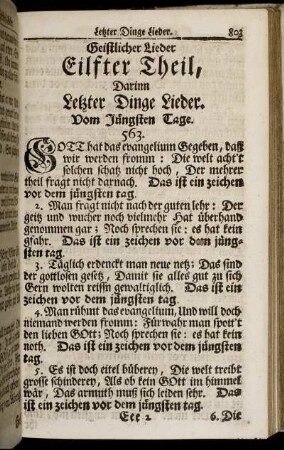 Letzter Dinge Lieder. 803
Geistlicher Lieder
Eilfter Theil,
Darinn
Letzter Dinge Lieder.
Vom Jüngsten Tage.
563.
GOTT hat das evangelium Gegeben, daß
wir werden fromm: Die welt acht't
solchen schatz nicht hoch, Der mehrer
theil fragt nicht darnach. Das ist ein zeichen
vor dem jüngsten tag.
2. Man fragt nicht nach der guten lehr: Der
geitz und wucher noch vielmehr Hat überhand
genommen gar; Noch sprechen sie: es hat kein
gfahr. Das ist ein zeichen vor dem jüng-
sten tag.
3. Täglich erdenckt man neue netz; Das sind
der gottlosen gesetz, Damit sie alles gut zu sich
Gern wolten reissn gewaltiglich. Das ist ein
zeichen vor dem jüngsten tag.
4. Man rühmt das evangelium, Und will doch
niemand werden fromm: Fürwahr man spott't
den lieben GOtt; Noch sprechen sie: es hat kein
noth. Das ist ein zeichen vor dem jüngsten
tag.
5. Es ist doch eitel büberey, Die welt treibt
grosse schinderey, Als ob kein GOtt im himmel
wär, Das armuth muß sich leiden sehr. Das
ist ein zeichen vor dem jüngsten tag.
Eee 2 6. Die